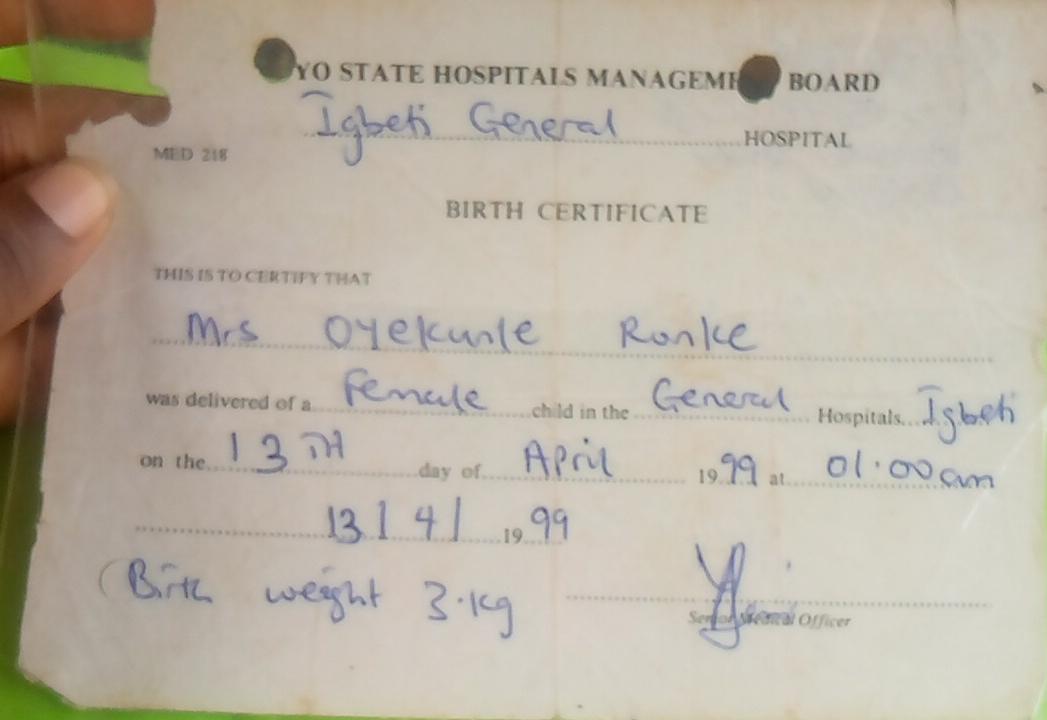 YO STATE HOSPITALS MANAGEME BOARD
Igbeti General HOSPITAL
MED 218
BIRTH CERTIFICATE
THIS IS TO CERTIFY THAT
Mrs Oyekunle Ronke
was delivered of a Female child in the General Hospitals Igbeti
on the 13TH day of April 1999 at 01.00am
13/4/1999
(Birth weight 3.kg
Senior Medical Officer